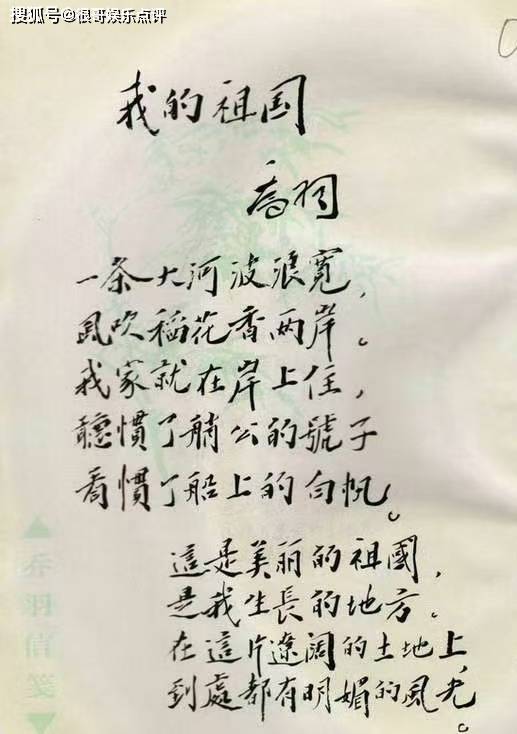 搜狐号@根哥娱乐点评
我的祖国
喬羽
一条大河波浪寬，
風吹稻花香两岸。
我家就在岸上住，
聽慣了艄公的號子
看慣了船上的白帆。
這是美丽的祖國，
是我生長的地方．
在這片遼阔的土地上，
到處都有明媚的風光。
乔羽信箋